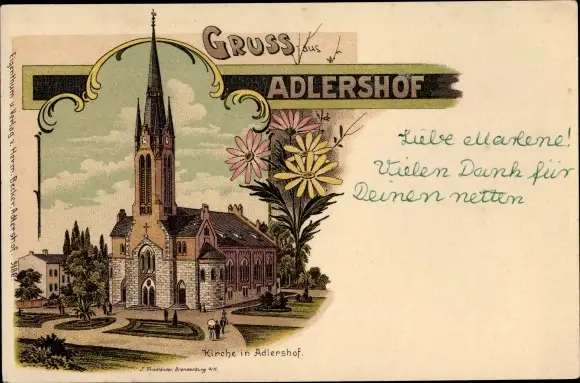 Gruss aus
ADLERSHOF
Liebe Marlene!
Vielen Dank für
Deinen netten
Kirche in Adlershof.
J. Friedländer, Brandenburg a/H.
Eigenthum u. Verlag v. Herm. Becker, Adlershof.